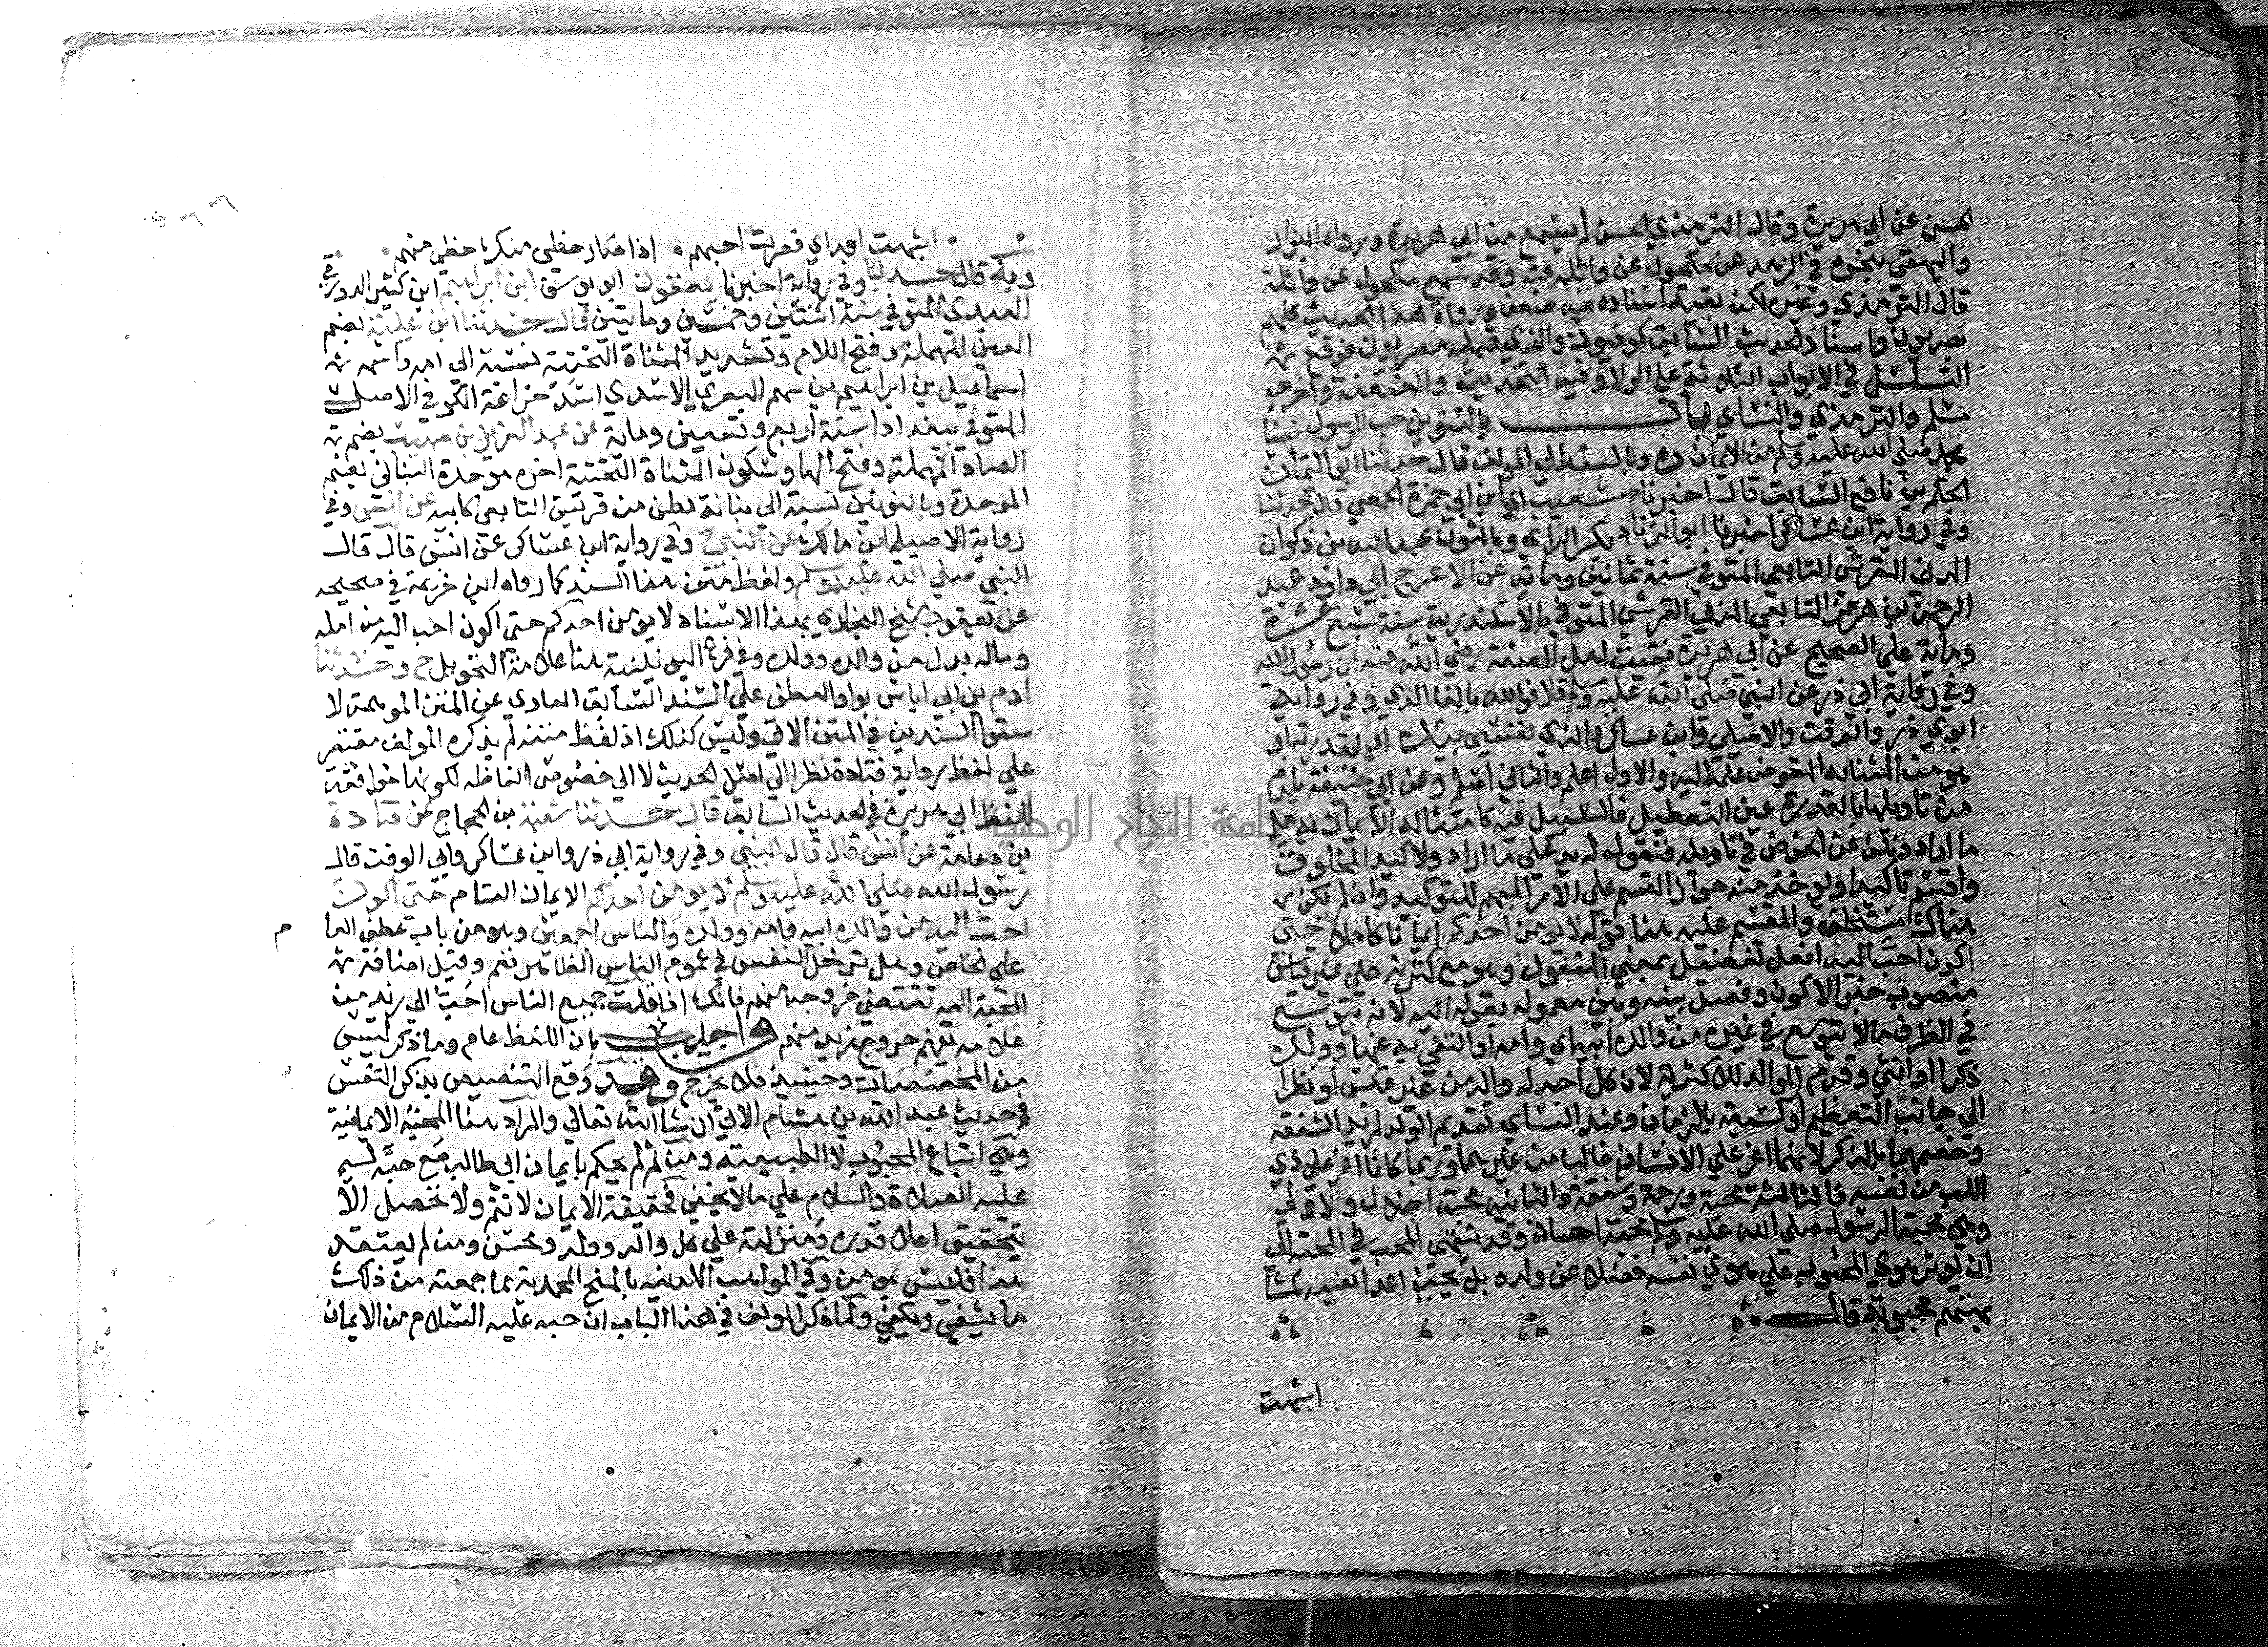 الحسن عن ابي هريرة وقال الترمذي الحسن لم يسمع من ابي هريرة ورواه البزار
والبيهقي بنحوه في الزهد عن مكحول عن واثلة عنه وقد سمع مكحول عن واثلة
قال الترمذي وغيره لكن بقية اسناده فيه ضعف ورواة هذا الحديث كلهم
بصريون واسناد الحديث السابق كوفيون والذي قبله مصريون فوقع
التسلسل في الابواب الثلاثة على الولا وفيه التحديث والعنعنة واخرجه
مسلم والترمذي والنساي باب بالتنوين حب الرسول نبينا
محمد صلى الله عليه وسلم من الايمان وبالسند الى المولف قال حدثنا ابو اليمان
الحكم بن نافع السابق قال اخبرنا شعيب اي ابن ابي حمزة الحمصي قال حدثنا
وفي رواية ابن عساكر اخبرنا ابو الزناد بكسر الزاي وبالنون عبد الله بن ذكوان
المدني القرشي التابعي المتوفي سنة ثمانين وماية عن الاعرج ابي داود عبد
الرحمن بن هرمز التابعي المدني القرشي المتوفي بالاسكندرية سنة سبع عشرة
وماية على الصحيح عن ابي هريرة نقيب اهل الصفة رضي الله عنه ان رسول الله
وفي رواية ابي ذر عن النبي صلى الله عليه وسلم قال فوالله بالفا الذي وفي رواية
ابوي ذر والوقت والاصيلي وابن عساكر والذي نفسي بيده اي بقدرته او
هو من المتشابه المفوض علمه اليه والاول اعلم والثاني اسلم وعن ابي حنيفة يلزم
من تاويلها بالقدرة عين التعطيل فالسبيل فيه كامثاله الايمان به على
ما اراد ونكف عن الخوض في تاويله فنقول له يد على ما اراد ولا كيد المخلوق
واقسم تاكيدا ويوخذ منه جواز القسم على الامر المبهم للتوكيد وان لم يكن
هناك مستحلف والمقسم عليه هنا قوله لا يومن احدكم ايمانا كاملا حتى
اكون احب اليه افعل تفضيل بمعني المفعول وهو مع كثرته على غير قياس
منصوب خبر الاكون وفصل بينه وبين معموله بقوله اليه لانه يتوسع
في الظرف ما لا يتوسع في غيره من والده ابيه اي وامه او اكتفي به عنها وولده
ذكرا او انثي وقدم الوالد للاكثرية لان كل احد له والد من غير عكس او نظرا
الى جانب التعظيم او لسبقه بالزمان وعند النساي تقديم الولد لمزيد الشفقه
وخصهما بالذكر لانهما اعز على الانسان غالبا من غيرهما وربما كانا اعز على ذي
اللب من نفسه فالثالثة محبة ورحمة وشفقة والثانيه محبة اجلال والاولى
وهي محبة الرسول صلى الله عليه وسلم محبة احسان وقد ينتهي المحب في المحبة الى
ان يوثر هوي المحبوب على هوي نفسه فضلا عن ولده بل يحب اعدا نفسه لمشا
بهتهم محبوبه قال
ابثهت
اشبهت اعداي فصرت احبهم اذا صار حظي منك حظي منهم
وبه قال حدثنا وفي رواية اخبرنا يعقوب ابو يوسف ابن ابراهيم ابن كثير الدورقي
العبدي المتوفي سنة اثنتين وخمسين ومايتين قال حدثنا ابن علية بضم
العين المهملة وفتح اللام وتشديد المثناة التحتية نسبة الى امه واسمه
اسماعيل بن ابراهيم بن سهم البصري الاسدي اسد خزاعة الكوفي الاصل
المتوفي ببغداد سنة اربع وتسعين وماية عن عبد العزيز بن صهيب بضم
الصاد المهملة وفتح الها وسكون المثناة التحتية اخره موحدة البناني بضم
الموحدة وبالنونين نسبة الى بنانة بطن من قريش التابعي كابيه عن انس وفي
رواية الاصيلي ابن مالك عن النبي وفي رواية ابن عساكر عن انس قال قال
النبي صلى الله عليه وسلم ولفظ متن هذا السند كما رواه ابن خزيمة في صحيحه
عن يعقوب شيخ البخاري بهذا الاسناد لا يومن احدكم حتى اكون احب اليه من اهله
وماله بدل من والده وولده وفي فرع اليونينية هنا علامة التحويل ح وحدثنا
ادم بن ابي اياس بواو العطف على السند السابق العاري عن المتن الموهمة لا
ستوا السندين في المتن الاتي وليس كذلك اذ لفظ متنه لم يذكره المولف مقتصر
على لفظ رواية قتادة نظرا الى اصل الحديث لا الى خصوص الفاظه لكونها موافقة
للفظ ابي هريرة في الحديث السابق قال حدثنا شعبة بن الحجاج عن قتادة
بن دعامة عن انس قال قال النبي وفي رواية ابي ذر وابن عساكر وابي الوقت قال
رسول الله صلى الله عليه وسلم لا يومن احدكم الايمان التام حتى اكون
احب اليه من والده ابيه وامه وولده والناس اجمعين وهو من باب عطف العا
م
على الخاص وهل تدخل النفس في عموم الناس الظاهر نعم وقيل اضافة
المحبة اليه تقتضي خروجه منهم فانك اذا قلت جميع الناس احب الى زيد من
غلامه يفهم خروج زيد منهم واجيب بان اللفظ عام وما ذكر ليس
من المخصصات وحينيذ فلا يخرج وقد وقع التنصيص بذكر النفس
في حديث عبد الله بن هشام الاتي ان شا الله تعالى والمراد هنا المحبة الايمانية
وهي اتباع المحبوب لا الطبيعية ومن ثم لم يحكم بايمان ابي طالب مع حبه له
عليه الصلاة والسلام على ما لا يخفي فحقيقة الايمان لا تتم ولا تحصل الا
بتحقيق اعلا قدره ومنزلته على كل والد وولد ومحسن ومن لم يعتقد
هذا فليس بمومن وفي المواهب اللدنيه بالمنح المحمدية مما جمعته من ذلك
ما يشفي ويكفي ولما ذكر المولف في هذا الباب ان حبه عليه السلام من الايمان
جامعة النجاح الوطنية